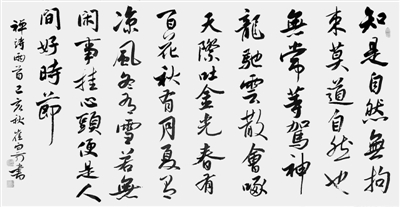 知是自然無拘
束莫道自然也
無常等駕神
龍馳雲散會啄
天際吐金光春有
百花秋有月夏有
凉風冬有雪若無
閑事挂心頭便是人
間好時節
禪詩兩首己亥秋崔書